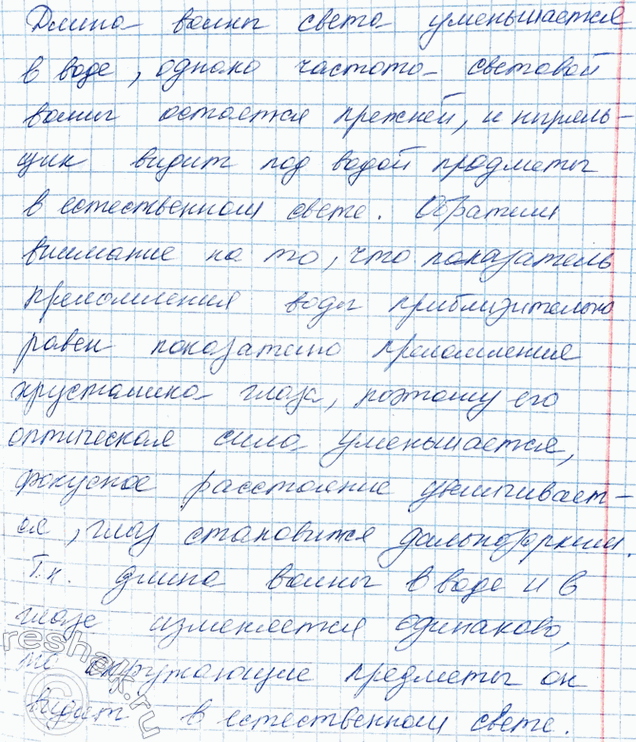 Длина волны света уменьшается
в воде, однако частота световой
волны остается прежней, и ныряль-
щик видит под водой предметы
в естественном свете. Обратим
внимание на то, что показатель
преломления воды приблизительно
равен показателю преломления
хрусталика глаза, поэтому его
оптическая сила уменьшается,
фокусное расстояние увеличивает-
ся, глаз становится дальнозорким.
Т.к. длина волны в воде и в
глазе изменяется одинаково,
то окружающие предметы он
видит в естественном свете.
reshak.ru